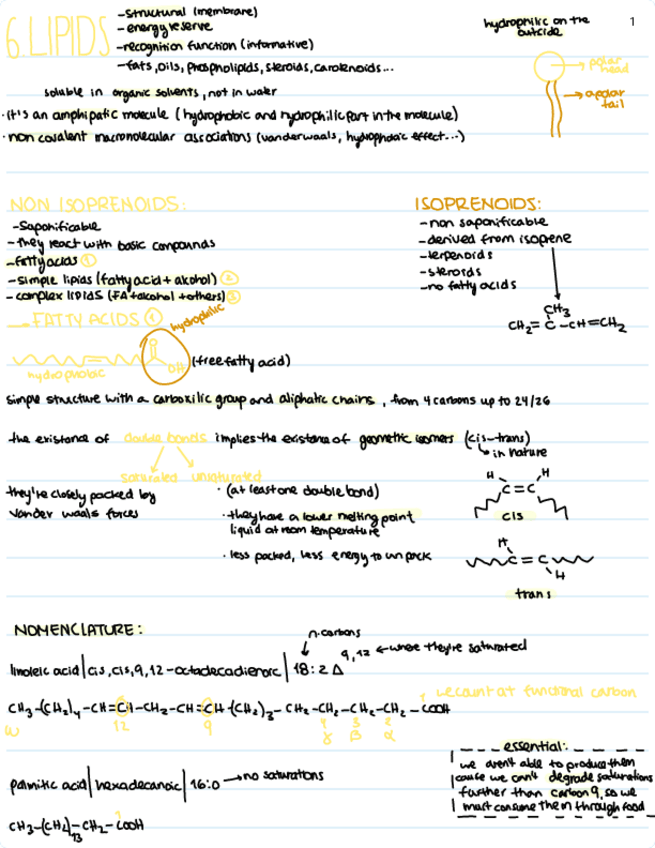 6. LIPIDS
-structural (membrane)
-energy reserve
-recognition function (informative)
-fats, oils, phospholipids, steroids, carotenoids...
hydrophilic on the outside
1
polar head
apolar tail
soluble in organic solvents, not in water
·it's an amphipatic molecule (hydrophobic and hydrophilic part in the molecule)
·non covalent macromolecular associations (vanderwaals, hydrophobic effect...)
NON ISOPRENOIDS:
-Saponificable
-they react with basic compounds
-fatty acids 1
-simple lipids (fatty acid + alkohol) 2
-complex lipids (FA+alkohol +others) 3
ISOPRENOIDS:
-non saponificable
-derived from isoprene
-terpenoids
-steroids
-no fatty acids
CH3
CH2=C-CH=CH2
FATTY ACIDS 1
hydrophilic
OH
(free fatty acid)
hydrophobic
simple structure with a carboxilic group and aliphatic chains, from 4 carbons up to 24/26
the existance of double bonds implies the existance of geometric isomers (cis-trans)
in nature
saturated unsaturated
they're closely packed by
Vander waals forces
· (at least one double bond)
· they have a lower melting point
liquid at room temperature
· less packed, less energy to unpack
H H
C=C
cis
H
C=C
H
trans
NOMENCLATURE:
n.carbons
linoleic acid | cis,cis,9,12-octadecadienoic | 18:2 Δ 9,12 ← where they're saturated
CH3-(CH2)4-CH=CH-CH2-CH=CH-(CH2)3-CH2-CH2-CH2-CH2-COOH
1 we count at functional carbon
ω 12 9 4 3 2
γ β α
palmitic acid | hexadecanoic | 16:0 → no saturations
CH3-(CH2)13-CH2-COOH
1
essential:
we aren't able to produce them
cause we can't degrade saturations
further than carbon 9, so we
must consume them through food